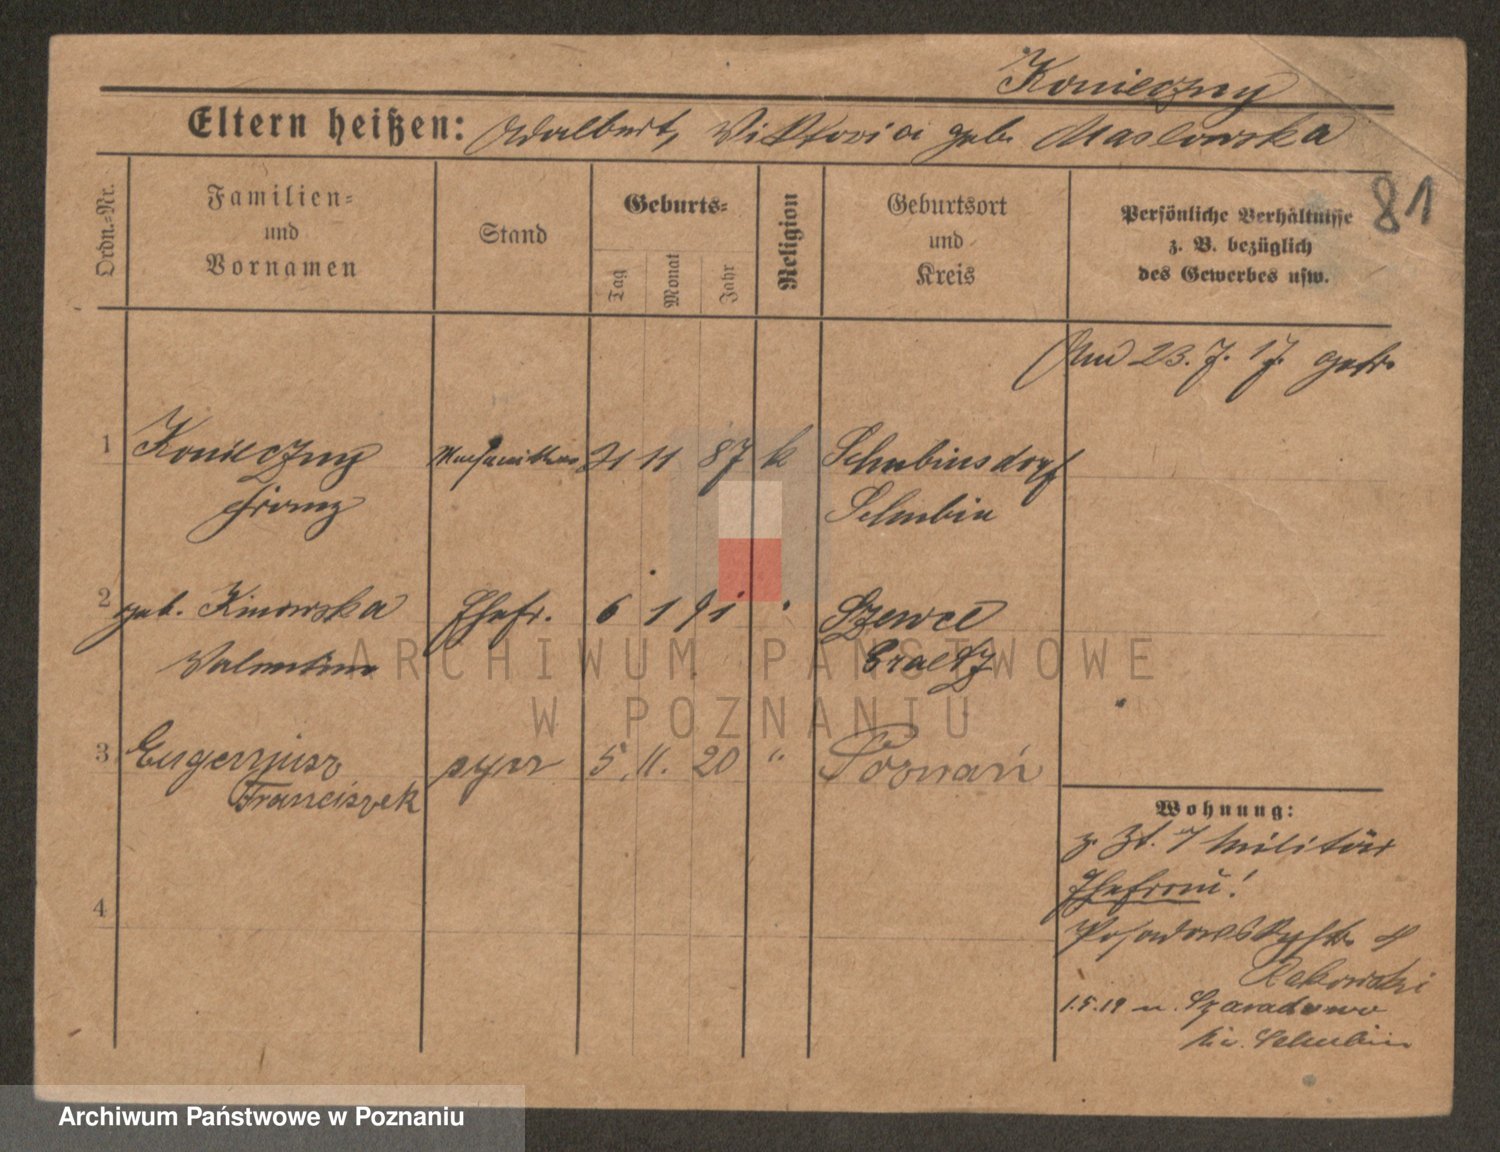 Konieczny
Eltern heißen: Adalbert, Viktoria geb. Maslowska
81
Ordn.=Nr.
Familien=
und
Vornamen
Stand
Geburts=
Tag
Monat
Jahr
Religion
Geburtsort
und
Kreis
Persönliche Verhältnisse
z. B. bezüglich
des Gewerbes usw.
23. 7. 17. getr.
1 Konieczny 11 87 k Schubinsdorf
Franz Schubin
2 geb. Kinowska Ehefr. 6 1 91 Szewce
Valentina Graetz
3 Eugenjusz syn 5. 11. 20 " Poznań
Franciszek
4
Wohnung:
z. Zt. Militär
Ehefrau!
Posadowskystr. 8
Rakowski
1.5.19 n. Szaradowo
Kr. Schubin
ARCHIWUM PAŃSTWOWE
W POZNANIU
Archiwum Państwowe w Poznaniu